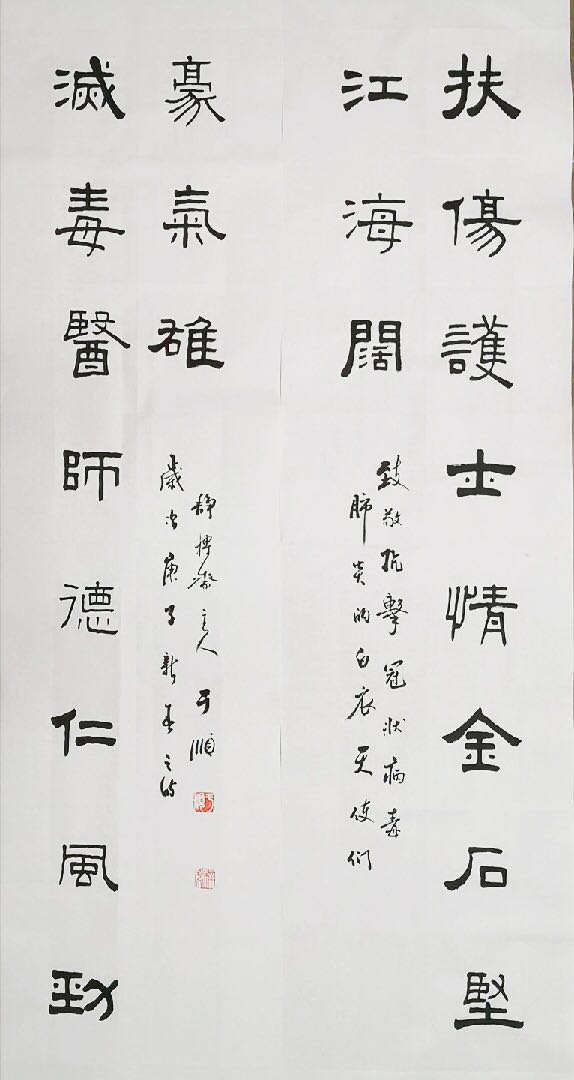 扶傷護士情金石堅
江海闊
致敬抗擊冠狀病毒
肺炎的白衣天使們
滅毒醫師德仁風勁
豪氣雄
歲次庚子新春之時
靜齋主人于順